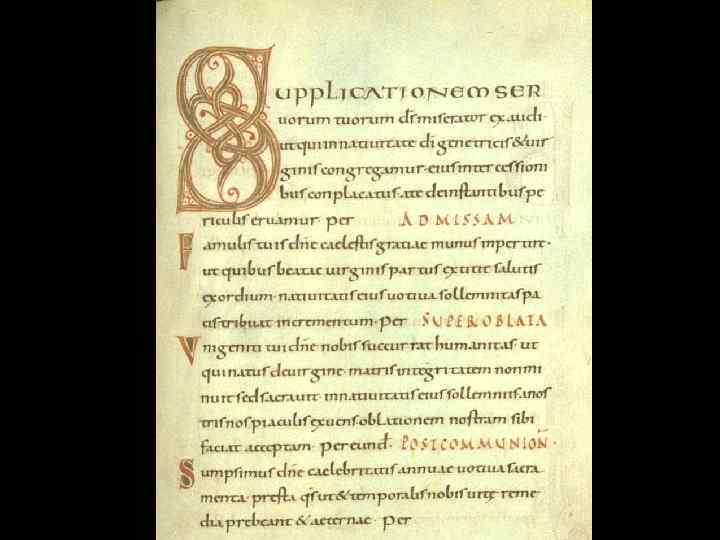 SUPPLICATIONEM SER
uorum tuorum d̄s miserator exaudi·
ut qui in natiuitate d̄i genetricis & uir
ginis congregamur· eius intercessioni
bus conplacatus· a te de instantibus pe
riculis eruamur· per AD MISSAM
Famulis tuis dn̄e caelestis gratiae munus inpertire·
ut quibus beatae uirginis partus extitit salutis
exordium· natiuitatis eius uotiua sollemnitas pa
cis tribuat incrementum· Per SUPER OBLATA
Vnigeniti tui dn̄e nobis succurrat humanitas· ut
qui natus de uirgine· matris integritatem non mi
nuit sed sacrauit· in natiuitatis eius sollemniis· a nos
tris nos piaculis exuens· oblationem nostram sibi
faciat acceptam· per eund̄· POSTCOMMUNION̄·
Sumpsimus dn̄e caelebritatis annuae uotiua sacra
menta· presta q̄s ut & temporalis nobis uitę reme
dia prebeant & aeternae· Per